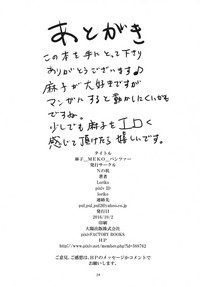 あとがき
この本を手にとって下さり
ありがとうございます♪
麻子が大好きですが
マンガにすると動かしにくいかも
ですね。
少しでも麻子をエロく
感じて頂けたら嬉しいです。
タイトル
発行サークル
Nの机
著者
Loriko
pixiv ID
loriko
連絡先
発行日
2016/10/2
印刷
大陽出版株式会社
pixivFACTORY BOOKS
HP
ご意見、ご感想は、HPのメッセージかコメントで
お願いします。
34